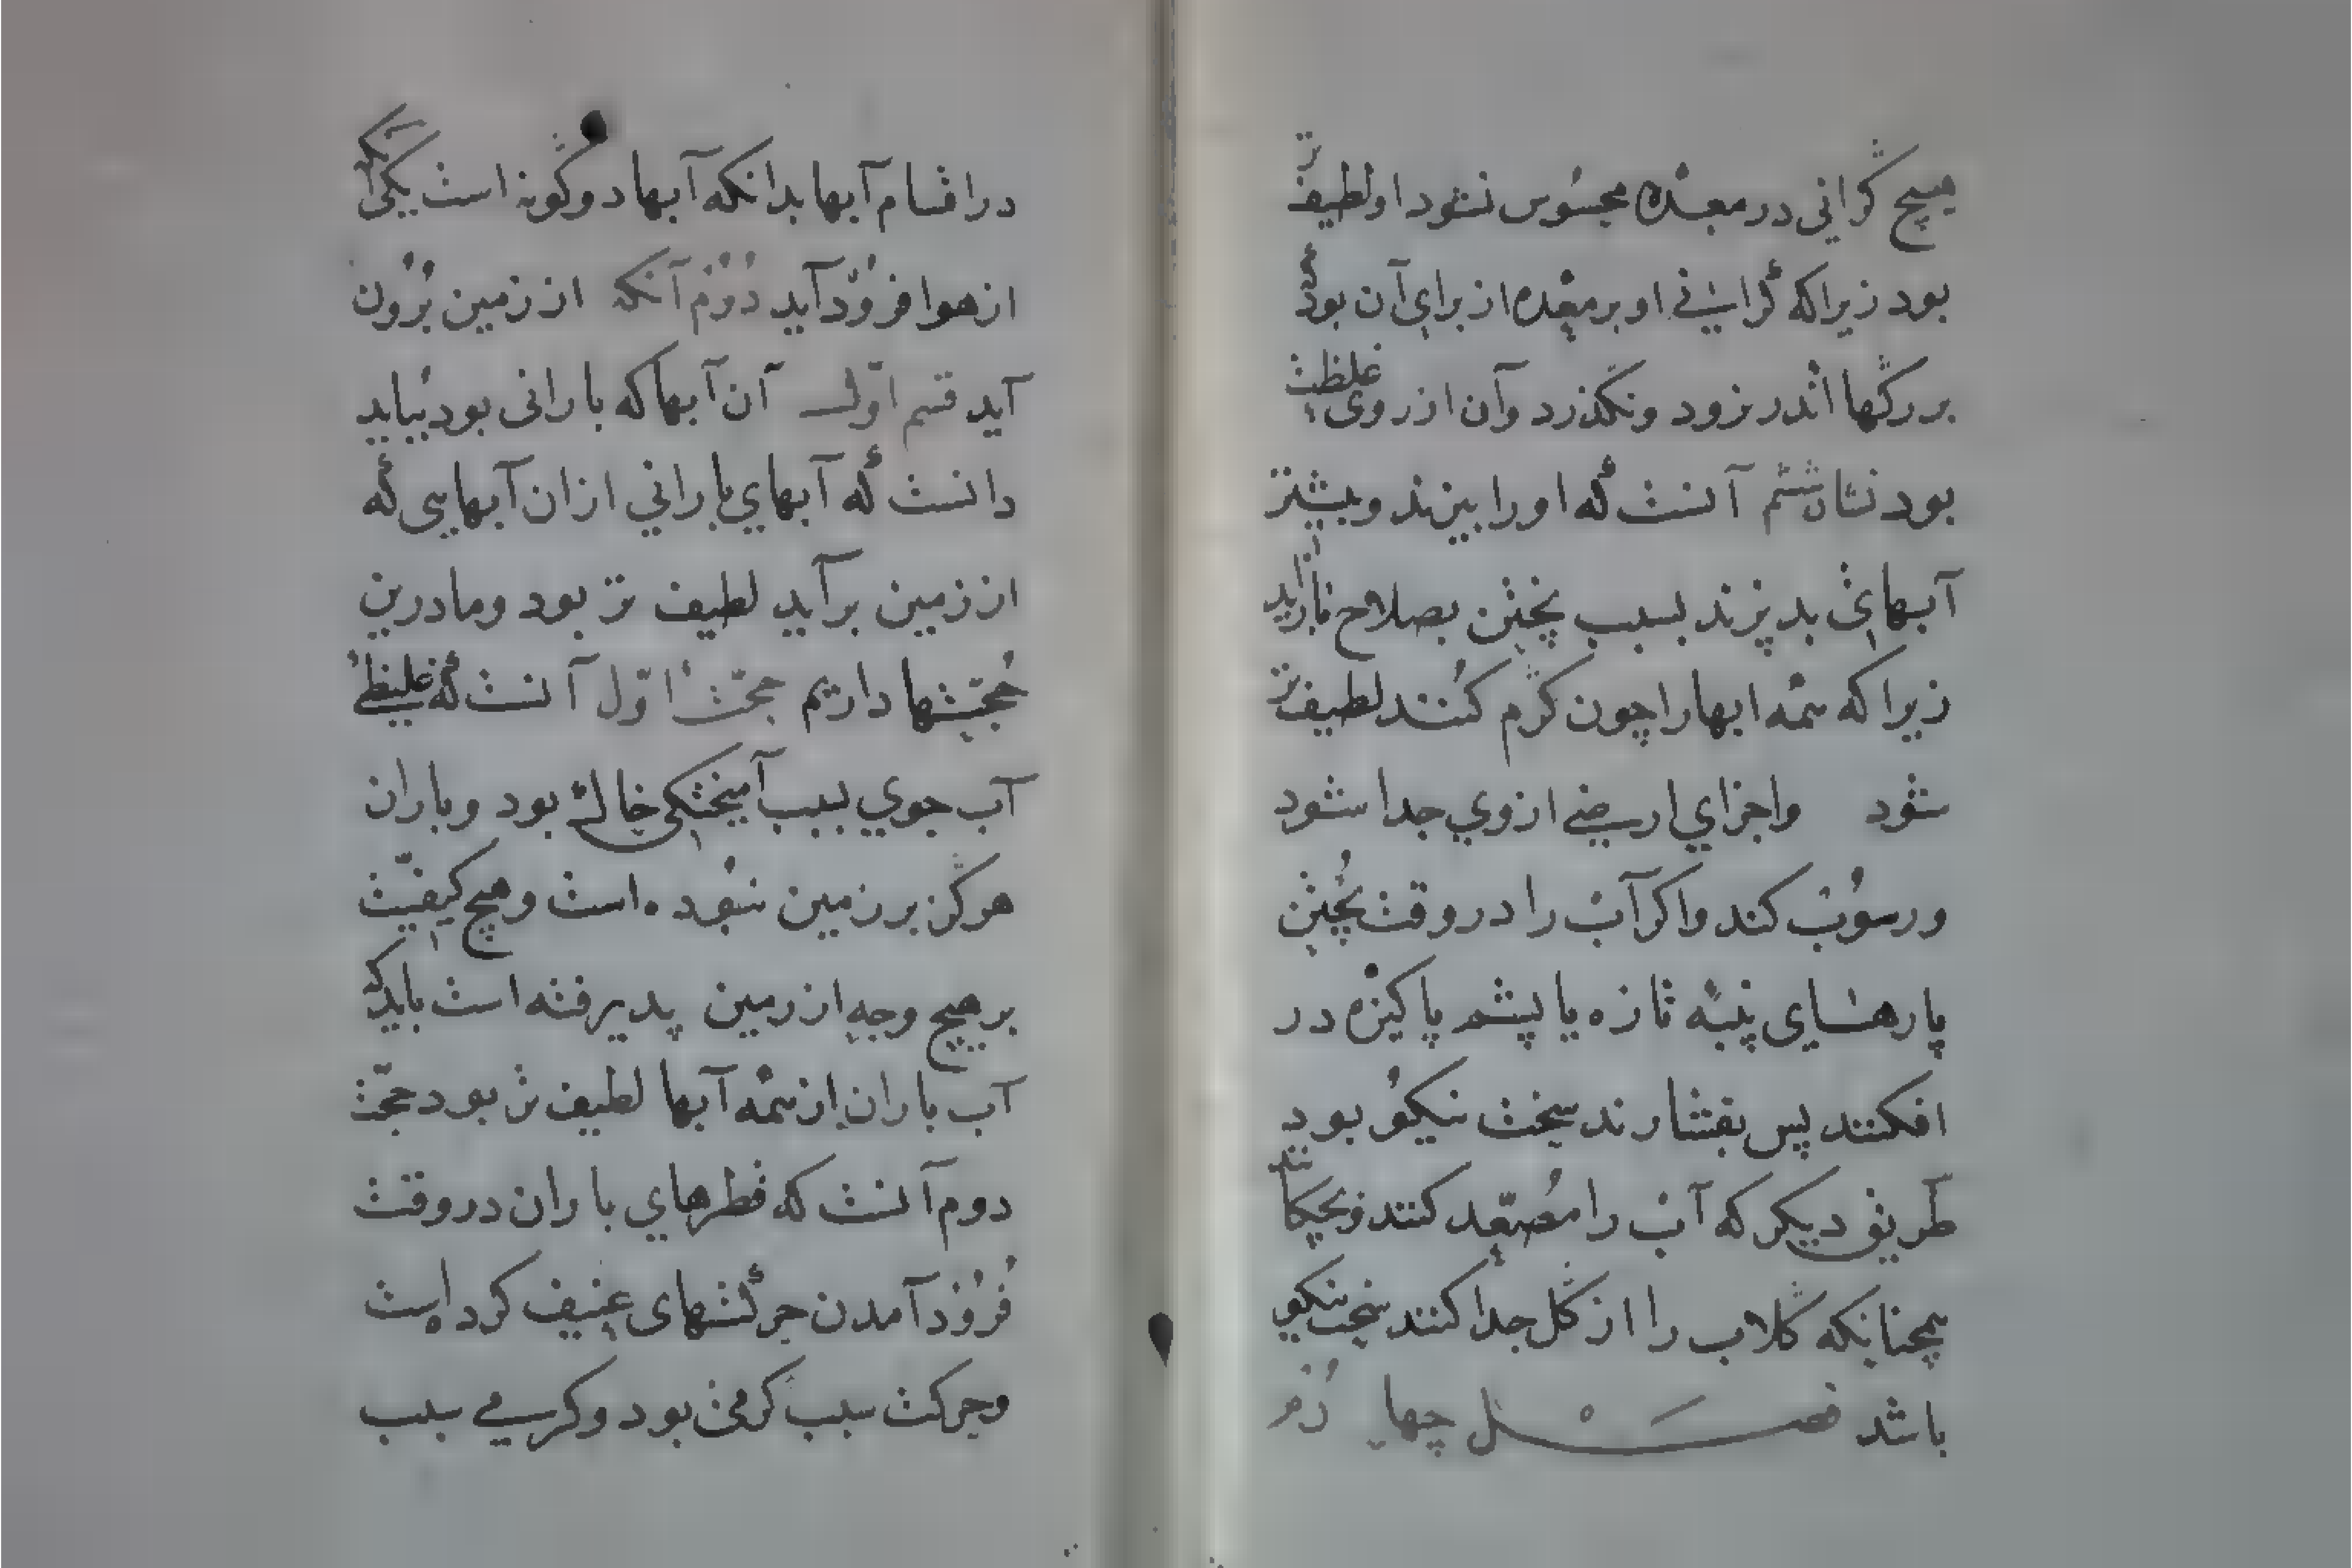 هیچ گرانی در معده محسوس نشود او لطیف تر
بود زیرا که گرانی او بر معده از برای آن بود که
بر رگها اندر نرود و نگذرد و آن از روی غلظت
بود نشان ششم آنست که او را بپزند و بیشتر
آبهای بد بپزند بسبب پختن بصلاح باز آید
زیرا که همه ابها را چون گرم کنند لطیف تر
شود و اجزاي ارضی از وي جدا شود
و رسوب کند و اکر آب را در وقت پختن
پارهای پنبه تازه یا پشم پاکیزه در
افکنند پس بفشارند سخت نیکو بود
طریق دیکر که آب را مصعد کنند و بچکانند
همچنانکه گلاب را از گل جدا کنند سخت نیکو
باشد فصل چهارم
در اقسام آبها بدانکه آبها دو گونه است یکی آنکه
از هوا فرود آید دوم آنکه از زمین برون
آید قسم اول آن آبها که بارانی بود بباید
دانست که آبهاي باراني از ان آبهایی که
از زمین برآید لطیف تر بود و ما درین
حجتها داریم حجت اول آنست که غلیظی
آب جوي بسبب آمیختکی خاک بود و باران
هرگز بر زمین نبوده است و هیچ کیفیت
بر هیچ وجه از زمین پذیرفته است باید که
آب باران از همه آبها لطیف تر بود حجت
دوم آنست که قطرهاي باران در وقت
فرود آمدن حرکتهای عنیف کرده است
و حرکت سبب کرمی بود و کرمی سبب